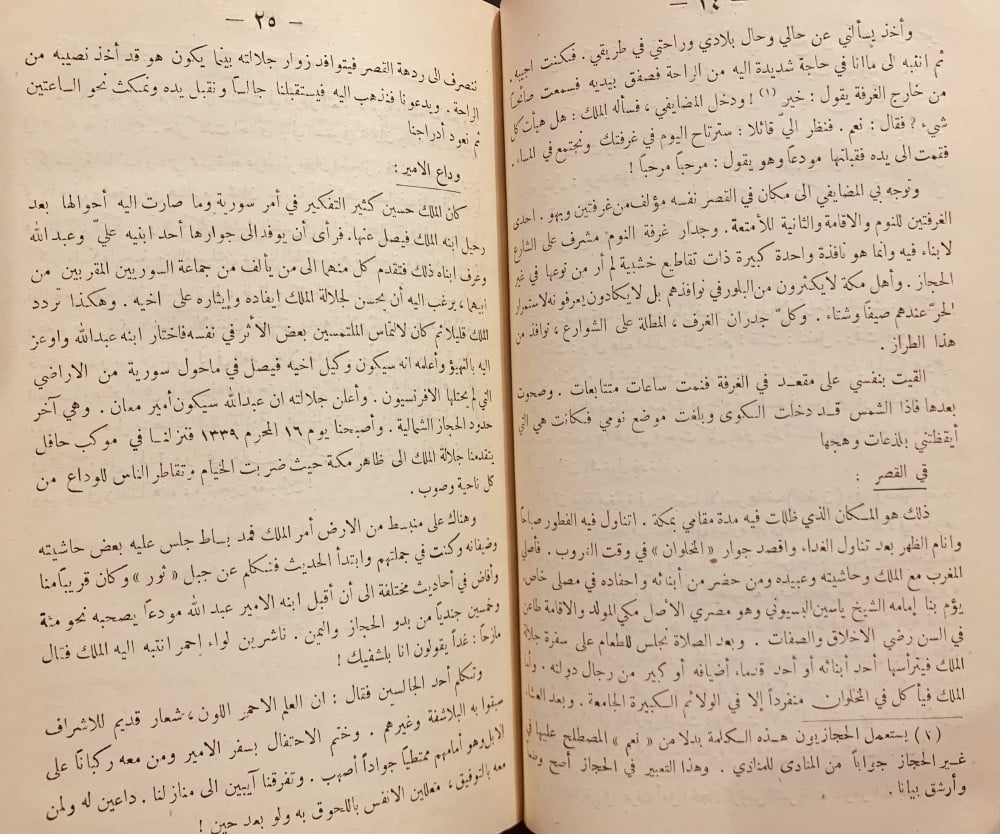 — ٢٤ —
وأخذ يسألني عن حالي وحال بلادي وراحتي في طريقي . فكنت اجيبه .
ثم انتبه الى ماانا في حاجة شديدة اليه من الراحة فصفق بيديه فسمعت صائحاً
من خارج الغرفة يقول : خير (١) ! ودخل المضايفي ، فسأله الملك : هل هيأت كل
شيء ؟ فقال : نعم . فنظر اليّ قائلا : سترتاح اليوم في غرفتك ونجتمع في المساء .
فقمت الى يده فقبلتها مودعاً وهو يقول : مرحباً مرحباً !
وتوجه بي المضايفي الى مكان في القصر نفسه مؤلف من غرفتين وبهو . احدى
الغرفتين للنوم والاقامة والثانية للأمتعة . وجدار غرفة النوم مشرف على الشارع
لابناء فيه وانما هو نافذة واحدة كبيرة ذات تقاطيع خشبية لم أر من نوعها في غير
الحجاز . وأهل مكة لايكثرون من البلور في نوافذهم بل لايكادون يعرفونه لاستمرار
الحرّ عندهم صيفاً وشتاء . وكلّ جدران الغرف ، المطلة على الشوارع ، نوافذ من
هذا الطراز .
القيت بنفسي على مقعد في الغرفة فنمت ساعات متتابعات . وصحوت
بعدها فاذا الشمس قد دخلت الكوى وبلغت موضع نومي فكانت هي التي
أيقظتني بلذعات وهجها
في القصر :
ذلك هو المكان الذي ظللت فيه مدة مقامي بمكة . اتناول فيه الفطور صباحاً
وانام الظهر بعد تناول الغداء واقصد جوار « المخلوان » في وقت الغروب . فأصلي
المغرب مع الملك وحاشيته وعبيده ومن حضر من أبنائه واحفاده في مصلى خاص
يؤم بنا إمامه الشيخ ياسين البسيوني وهو مصري الأصل مكي المولد والاقامة طاعن
في السن رضي الاخلاق والصفات . وبعد الصلاة نجلس للطعام على سفرة جلالة
الملك فيترأسها أحد أبنائه أو أحد قدماء أضيافه أو كبير من رجال دولته . وأما
الملك فيأكل في المخلوان منفرداً إلا في الولائم الكبيرة الجامعة . وبعد العشاء
(١) يستعمل الحجازيون هذه الكلمة بدلا من « نعم » المصطلح عليها في
غير الحجاز جواباً من المنادى للمنادي . وهذا التعبير في الحجاز أصح وضعاً
وأرشق بيانا .
— ٢٥ —
ننصرف الى ردهة القصر فيتوافد زوار جلالته بينما يكون هو قد أخذ نصيبه من
الراحة . ويدعونا فنذهب اليه فيستقبلنا جالساً ونقبل يده ونمكث نحو الساعتين
ثم نعود أدراجنا
وداع الامير :
كان الملك حسين كثير التفكير في أمر سورية وما صارت اليه أحوالها بعد
رحيل ابنه الملك فيصل عنها . فرأى أن يوفد الى جوارها أحد ابنيه عليّ وعبد الله
وعرف ابناه ذلك فتقدم كل منهما الى من يألف من جماعة السوريين المقربين من
ابيهما ، يرغب اليه أن يحسن لجلالة الملك ايفاده وإيثاره على اخيه . وهكذا تردد
الملك قليلا ثم كان لالتماس الملتمسين بعض الأثر في نفسه فاختار ابنه عبدالله واوعز
اليه بالتهيؤ وأعلمه انه سيكون وكيل اخيه فيصل في ماحول سورية من الاراضي
التي لم يحتلها الافرنسيون . وأعلن جلالته ان عبدالله سيكون أمير معان . وهي آخر
حدود الحجاز الشمالية . وأصبحنا يوم ١٦ المحرم ١٣٣٩ فنزلنا في موكب حافل
يتقدمنا جلالة الملك الى ظاهر مكة حيث ضربت الخيام وتقاطر الناس للوداع من
كل ناحية وصوب .
وهناك على منبسط من الارض أمر الملك فمد بساط جلس عليه بعض حاشيته
وضيفانه وكنت في جملتهم وابتدأ الحديث فتكلم عن جبل « ثور » وكان قريباً منا
وأفاض في أحاديث مختلفة الى أن أقبل ابنه الامير عبد الله مودعاً يصحبه نحو مئة
وخمسين جندياً من بدو الحجاز واليمن . ناشرين لواء احمر انتبه اليه الملك فقال
مازحاً : غداً يقولون انا بلشفيك !
وتكلم أحد الجالسين فقال : ان العلم الاحمر اللون ، شعار قديم للاشراف
سبقوا به البلاشفة وغيرهم . وختم الاحتفال بسفر الامير ومن معه ركباناً على
الابل وهو أمامهم ممتطياً جواداً أصهب . وتفرقنا آيبين الى منازلنا . داعين له ولمن
معه بالتوفيق ، معللين الانفس باللحوق به ولو بعد حين !